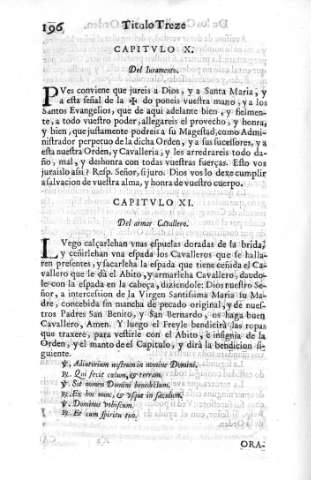 196 Titulo Treze
CAPITVLO X.
Del Iuramento.
PVes conviene que jureis a Dios, y a Santa Maria, y
a esta señal de la ✠ do poneis vuestra mano, y a los
Santos Evangelios, que de aqui adelante bien, y fielmen-
te, a todo vuestro poder, allegareis el provecho, y honra,
y bien, que justamente podreis a su Magestad, como Admi-
nistrador perpetuo de la dicha Orden, y a sus sucessores, y a
esta nuestra Orden, y Cavalleria, y les arredrareis todo da-
ño, mal, y deshonra con todas vuestras fuerças. Esto vos
juraislo assi? Resp. Señor, si juro. Dios vos lo dexe cumplir
a salvacion de vuestra alma, y honra de vuestro cuerpo.
CAPITVLO XI.
Del armar Cavallero.
LVego calçarlehan vnas espuelas doradas de la brida,
y ceñirlehan vna espada los Cavalleros que se halla-
ren presentes, y sacarleha la espada que tiene ceñida el Ca-
vallero que le dà el Abito, y armarleha Cavallero, dando-
le con la espada en la cabeça, diziendole: Dios nuestro Se-
ñor, a intercession de la Virgen Santissima Maria su Ma-
dre, concebida sin mancha de pecado original, y de nues-
tros Padres San Benito, y San Bernardo, os haga buen
Cavallero, Amen. Y luego el Freyle bendicirà las ropas
que traxere, para vestirle con el Abito, e insignia de la
Orden, y el manto de el Capitulo, y dirà la bendicion si-
guiente.
℣. Adiutorium nostrum in nomine Domini.
℟. Qui fecit cœlum, & terram.
℣. Sit nomen Domini benedictum.
℟. Ex hoc nunc, & vsque in sæculum.
℣. Dominus vobiscum.
℟. Et cum spiritu tuo.
ORA-